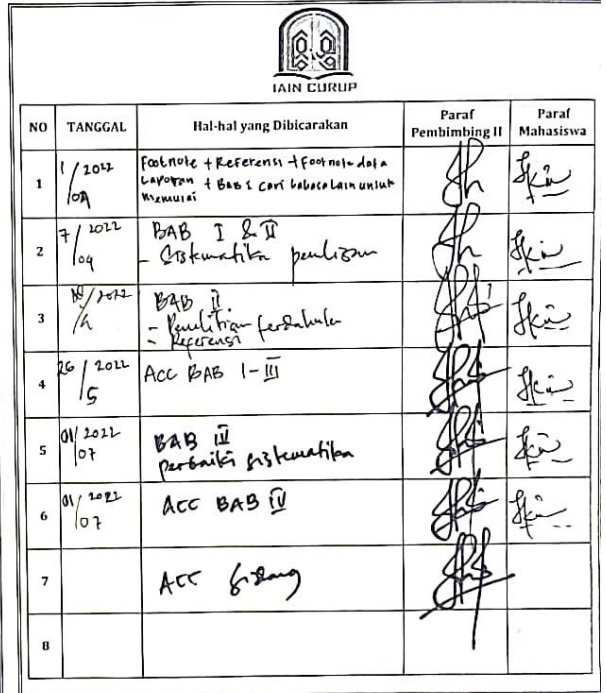 IAIN CURUP
NO TANGGAL Hal-hal yang Dibicarakan Paraf Pembimbing II Paraf Mahasiswa
1 1/04 2022 Footnote + Referensi + Footnote data
Laporan + BAB 1 cari bahasa lain untuk
memulai
2 7/04 2022 BAB I & II
- Sistematika penulisan
3 2022 BAB II
- Penelitian terdahulu
- Referensi
4 26/5 2022 ACC BAB I - III
5 01/07 2022 BAB III
perbaiki sistematika
6 01/07 2022 ACC BAB IV
7 ACC Sidang
8